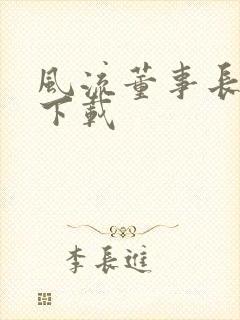 風流董事長
下載
李長進